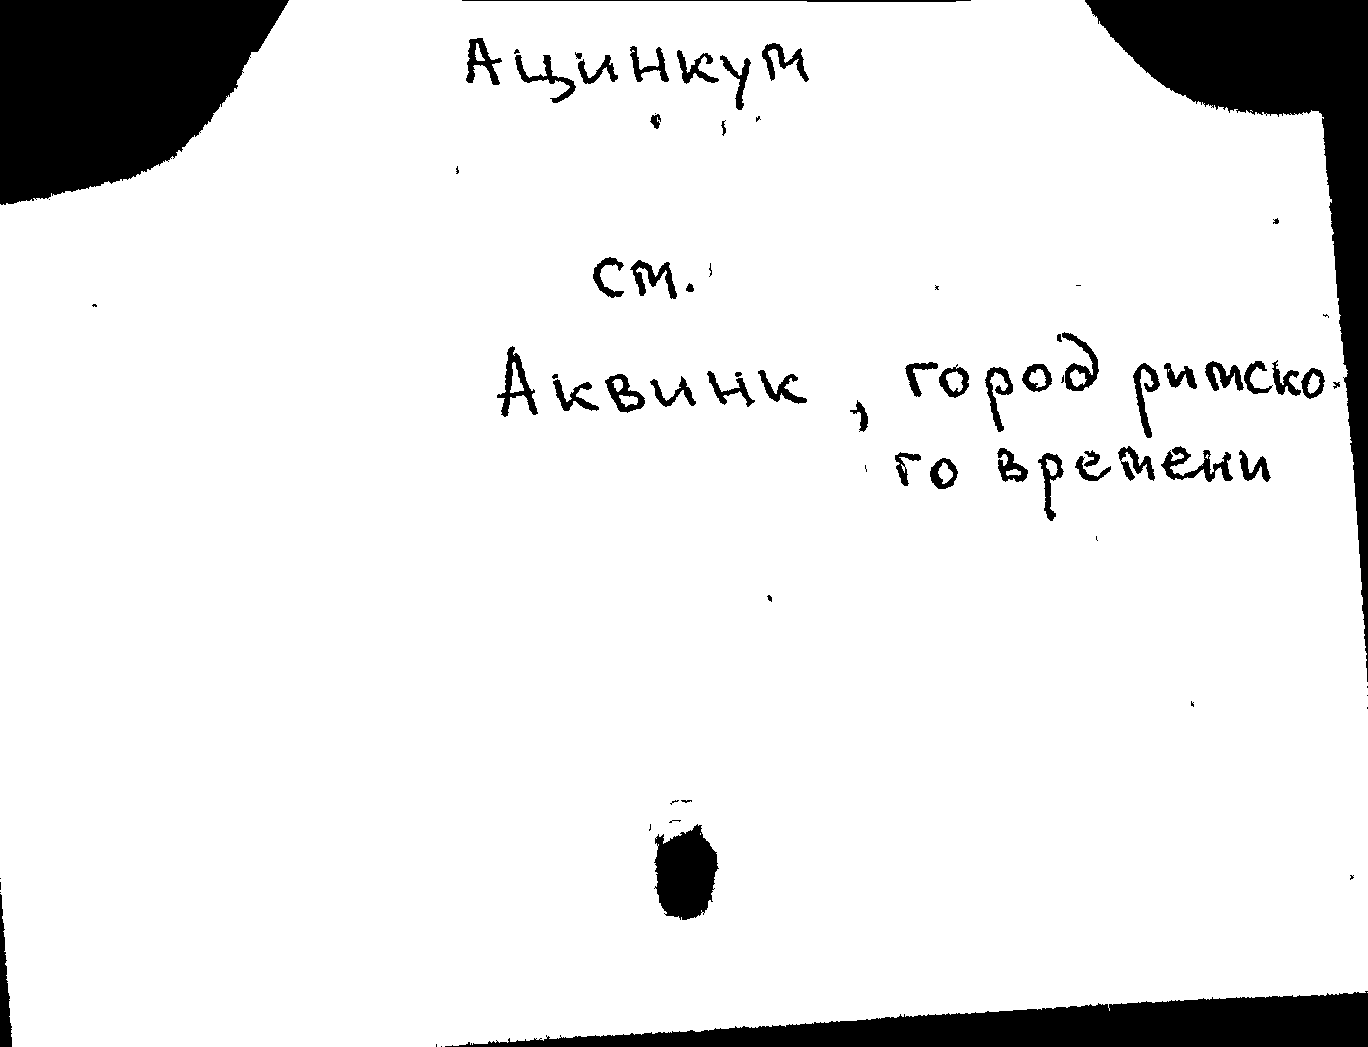 Ацинкум
см.
Аквинк, город римско-
го времени